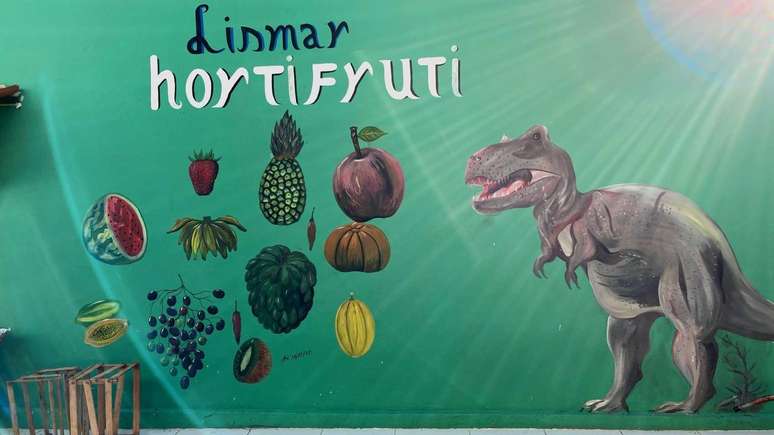 Lismar
hortifruti